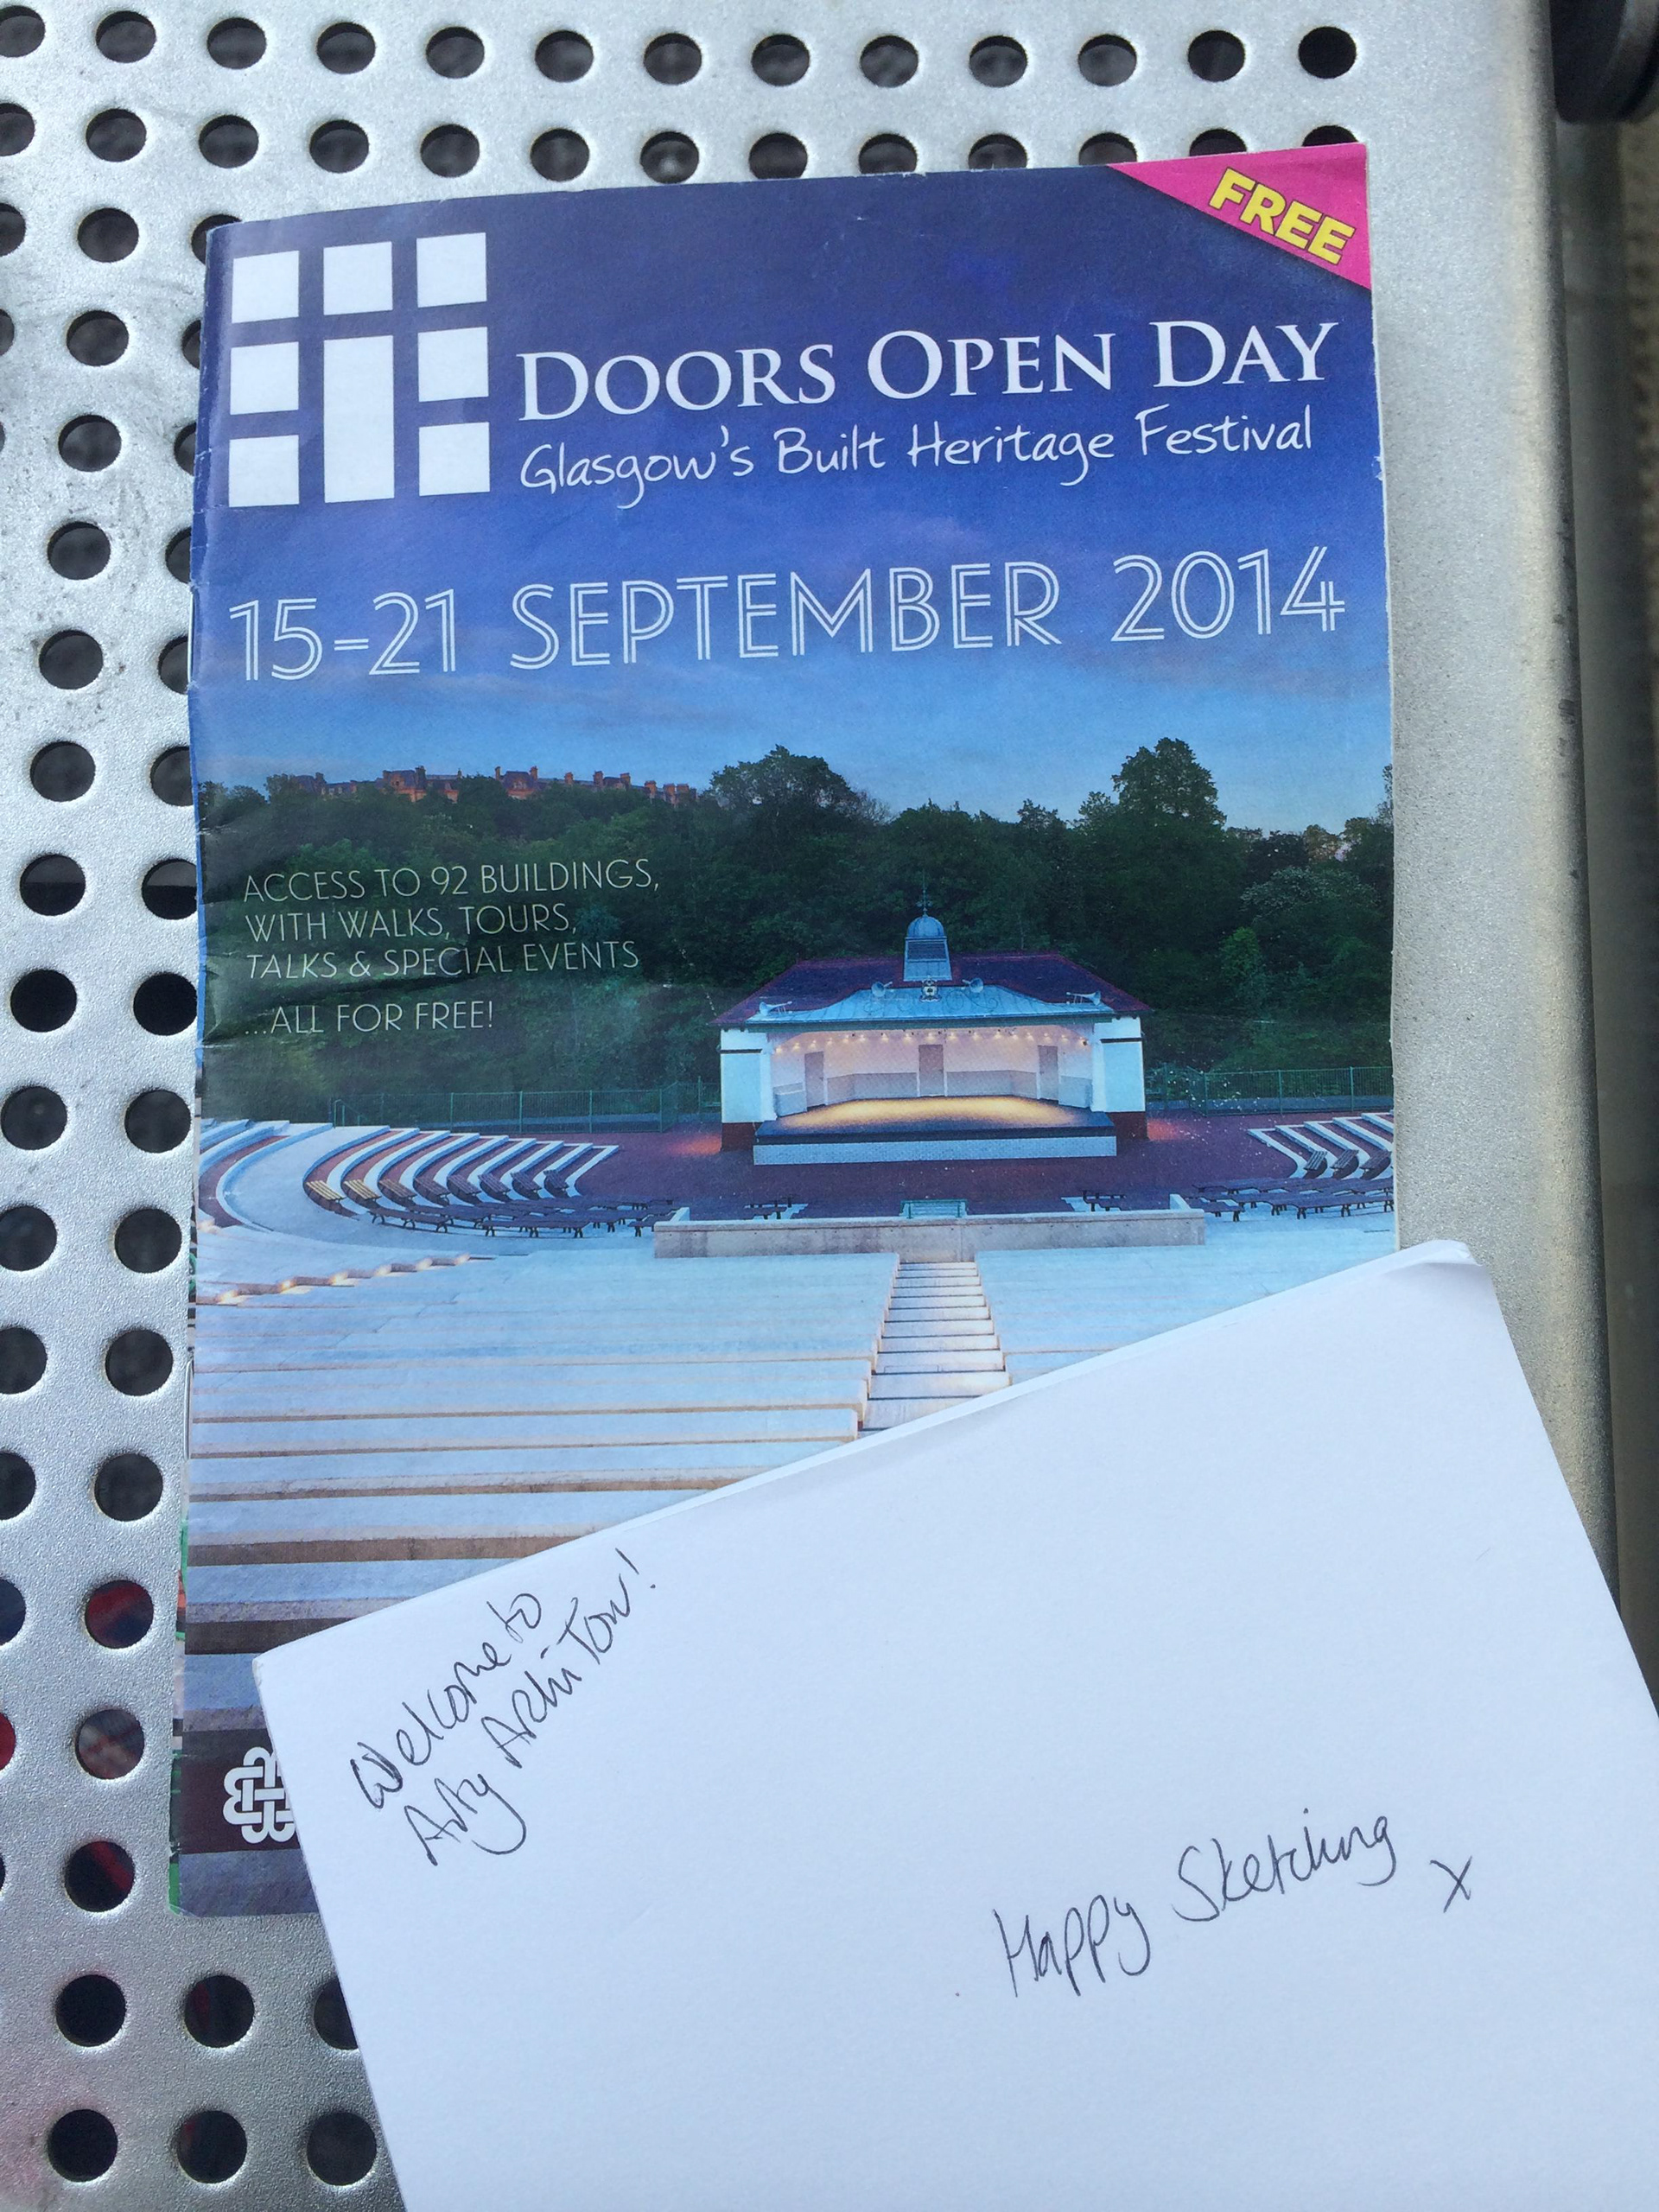 FREE
DOORS OPEN DAY
Glasgow's Built Heritage Festival
15-21 SEPTEMBER 2014
ACCESS TO 92 BUILDINGS,
WITH WALKS, TOURS,
TALKS & SPECIAL EVENTS
...ALL FOR FREE!
Welcome to
Arty Archi Tour!
Happy Sketching
x